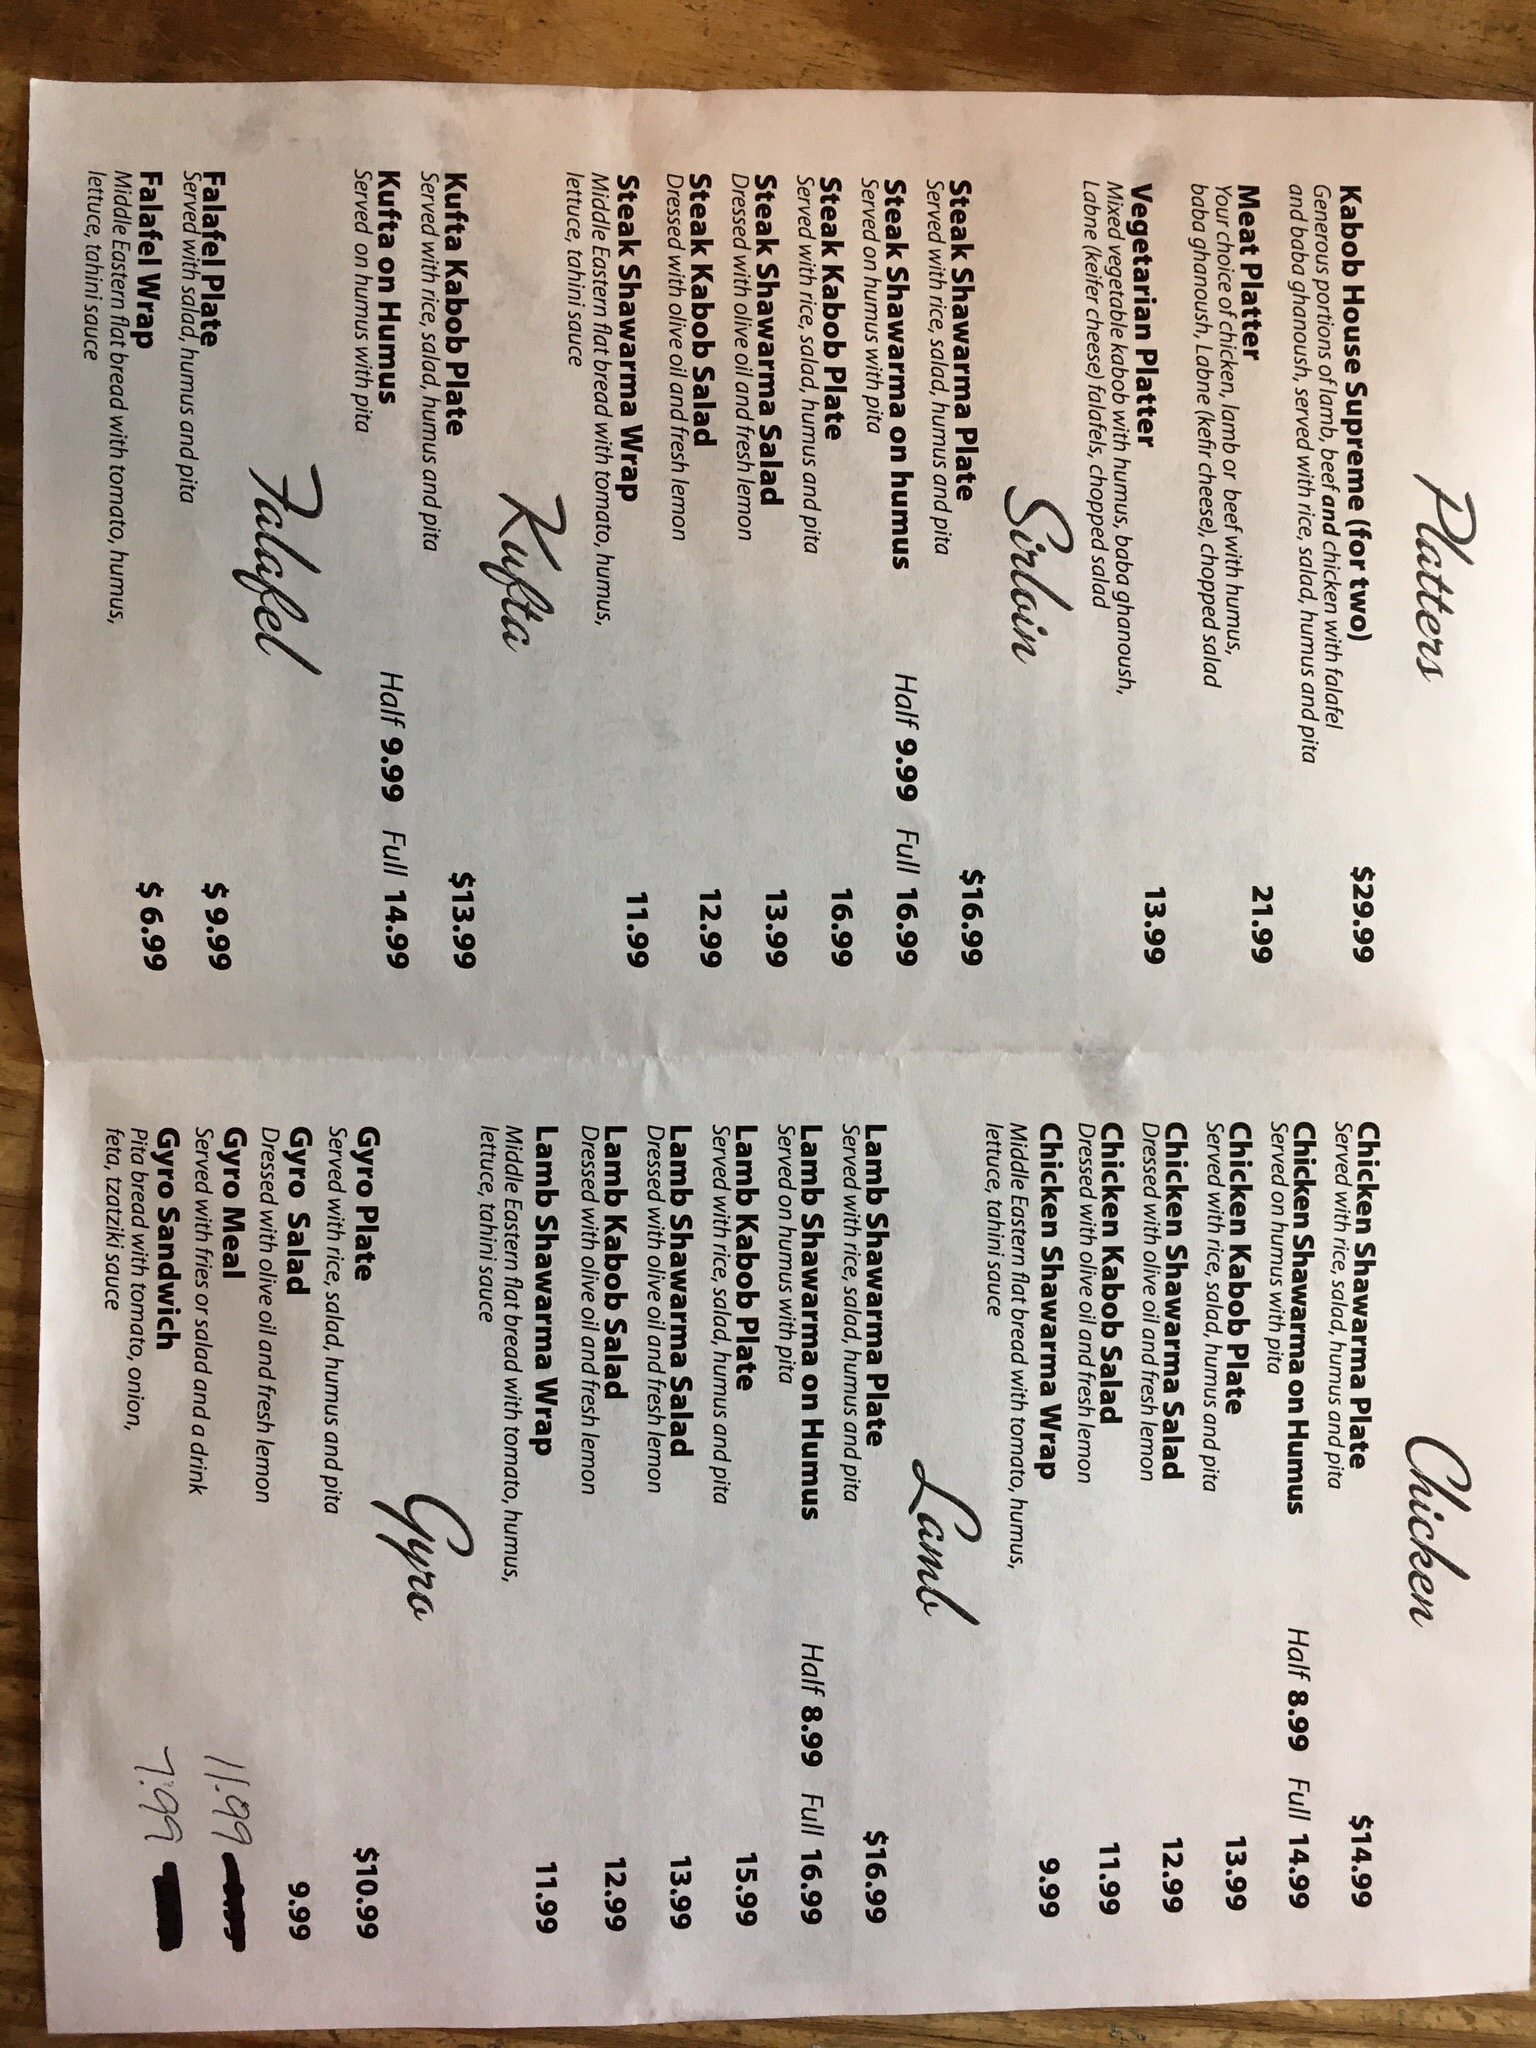 Platters
Kabob House Supreme (for two) $29.99
Generous portions of lamb, beef and chicken with falafel
and baba ghanoush, served with rice, salad, humus and pita
Meat Platter 21.99
Your choice of chicken, lamb or beef with humus,
baba ghanoush, Labne (kefir cheese), chopped salad
Vegetarian Platter 13.99
Mixed vegetable kabob with humus, baba ghanoush,
Labne (keifer cheese) falafels, chopped salad
Sirloin
Steak Shawarma Plate $16.99
Served with rice, salad, humus and pita
Steak Shawarma on humus Half 9.99 Full 16.99
Served on humus with pita
Steak Kabob Plate 16.99
Served with rice, salad, humus and pita
Steak Shawarma Salad 13.99
Dressed with olive oil and fresh lemon
Steak Kabob Salad 12.99
Dressed with olive oil and fresh lemon
Steak Shawarma Wrap 11.99
Middle Eastern flat bread with tomato, humus,
lettuce, tahini sauce
Kufta
Kufta Kabob Plate $13.99
Served with rice, salad, humus and pita
Kufta on Humus Half 9.99 Full 14.99
Served on humus with pita
Falafel
Falafel Plate $ 9.99
Served with salad, humus and pita
Falafel Wrap $ 6.99
Middle Eastern flat bread with tomato, humus,
lettuce, tahini sauce
Chicken
Chicken Shawarma Plate $14.99
Served with rice, salad, humus and pita
Chicken Shawarma on Humus Half 8.99 Full 14.99
Served on humus with pita
Chicken Kabob Plate 13.99
Served with rice, salad, humus and pita
Chicken Shawarma Salad 12.99
Dressed with olive oil and fresh lemon
Chicken Kabob Salad 11.99
Dressed with olive oil and fresh lemon
Chicken Shawarma Wrap 9.99
Middle Eastern flat bread with tomato, humus,
lettuce, tahini sauce
Lamb
Lamb Shawarma Plate $16.99
Served with rice, salad, humus and pita
Lamb Shawarma on Humus Half 8.99 Full 16.99
Served on humus with pita
Lamb Kabob Plate 15.99
Served with rice, salad, humus and pita
Lamb Shawarma Salad 13.99
Dressed with olive oil and fresh lemon
Lamb Kabob Salad 12.99
Dressed with olive oil and fresh lemon
Lamb Shawarma Wrap 11.99
Middle Eastern flat bread with tomato, humus,
lettuce, tahini sauce
Gyro
Gyro Plate $10.99
Served with rice, salad, humus and pita
Gyro Salad 9.99
Dressed with olive oil and fresh lemon
Gyro Meal 11.99
Served with fries or salad and a drink
Gyro Sandwich 7.99
Pita bread with tomato, onion,
feta, tzatziki sauce